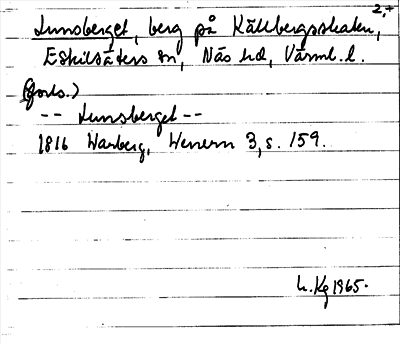 2,+
Lunsberget, berg på Kållbergsskaten,
Eskilsäters sn, Näs hd, Värml. l.
(forts.)
-- Lunsberget --
1816 Warberg, Wenern 3, s. 159.
L. Kg 1965.